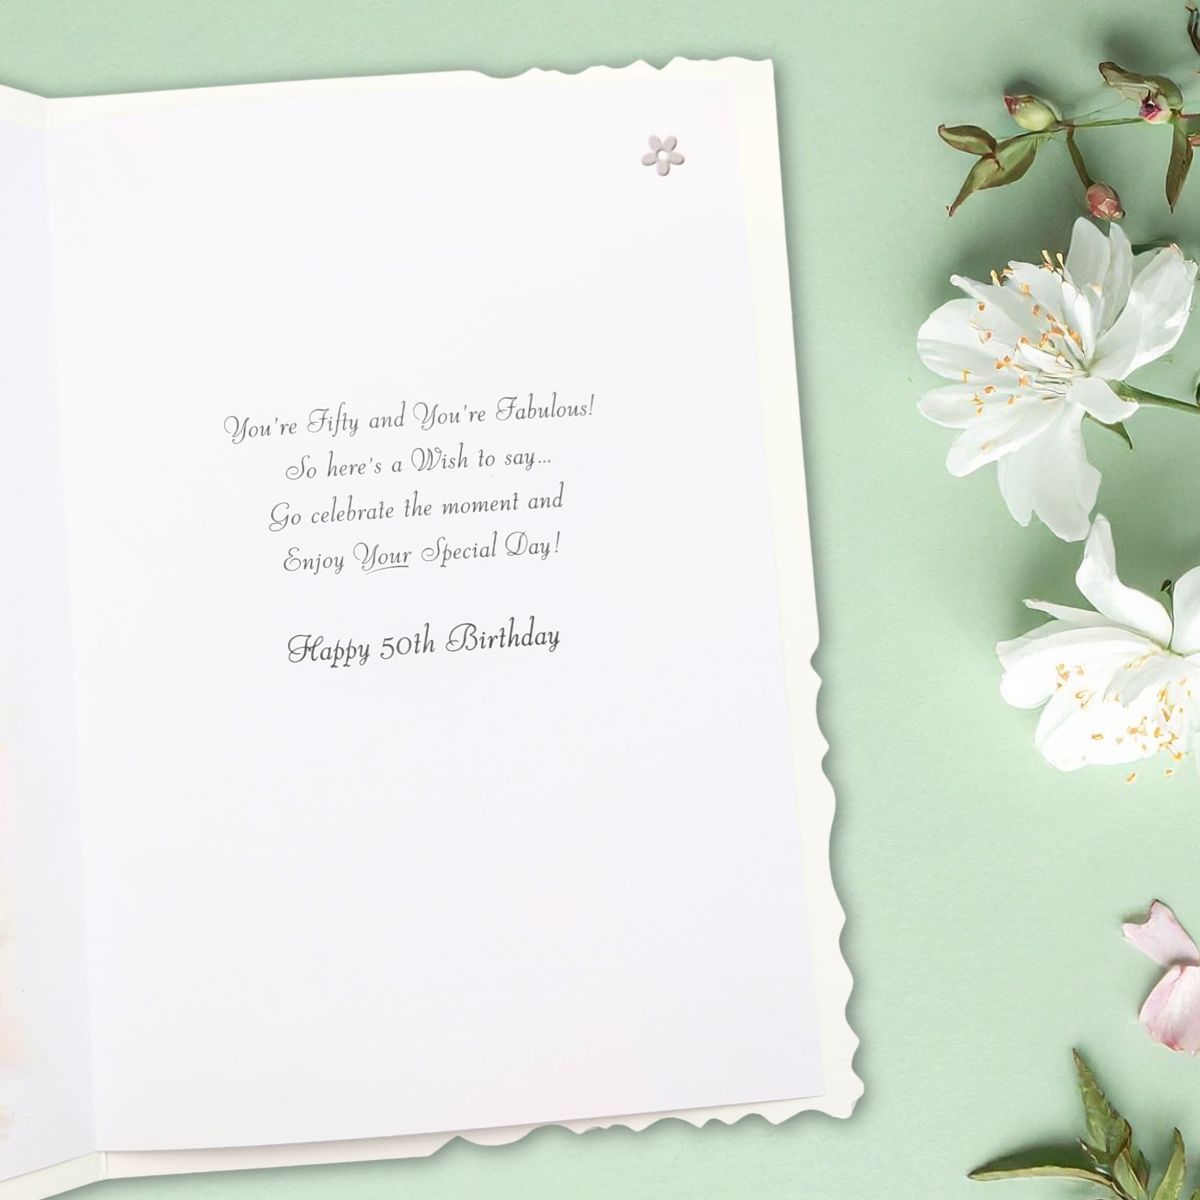 You're Fifty and You're Fabulous!
So here's a Wish to say...
Go celebrate the moment and
Enjoy Your Special Day!
Happy 50th Birthday